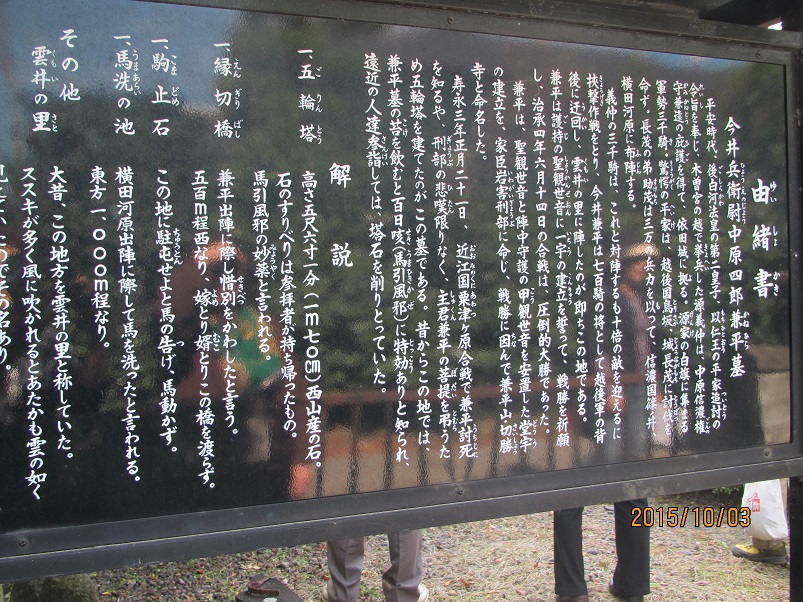 由緒書
今井兵衛尉中原四郎兼平墓
平安時代、後白河法皇の第二皇子、以仁王の平家追討の
令旨を奉じ、木曽宮の越で挙兵した源義仲は、中原信濃権
守兼遠の庇護を得て、依田城に拠る。源家の白旗に集まる
軍勢三千騎、驚愕の平家は、越後国鳥坂、城長茂に討伐を
命ず。長茂の弟、助茂は三万の兵力を以って、信濃国篠ノ井、
横田河原に布陣する。
義仲の三千騎は、これと対陣するも十倍の敵を迎えるに
挟撃作戦をとり、今井兼平は七百騎の将として越後軍の背
後に迂回し、雲井の里に陣したのが即ちこの地である。
兼平は護持の聖観世音に一宇の建立を誓って、戦勝を祈願
し、治承四年六月十四日の合戦は、圧倒的大勝であった。
兼平は、聖観世音と陣中守護の甲観世音を安置した堂宇
の建立を、家臣岩害刑部に命じ、戦勝に因んで兼平山切勝
寺と命名した。
寿永三年正月二十一日、近江国粟津ヶ原合戦で兼平討死
を知るや、刑部の悲嘆限りなく、主君兼平の菩提を弔うた
め五輪塔を建てたのがこの墓である。昔からこの地では、
兼平墓の苔を飲むと百日咳（馬引風邪）に特効ありと知られ、
遠近の人達参詣しては、塔石を削りとっていた。
解説
一、五輪塔 高さ五尺六寸一分（一m七〇cm）西山産の石。
石のすりべりは参拝者が持ち帰ったもの。
馬引風邪の妙薬と言われる。
一、縁切橋 兼平出陣に際し惜別をかわしたと言う。
五百m程西なり、嫁とり婿とりこの橋を渡らず。
一、駒止石 この地に駐屯せよと馬の告げ、馬動かず。
一、馬洗の池 横田河原出陣に際して馬を洗ったと言われる。
東方一、〇〇〇m程なり。
その他
雲井の里 大昔、この地方を雲井の里と称していた。
ススキが多く風に吹かれるとあたかも雲の如く
のでその名あり。
2015/10/03